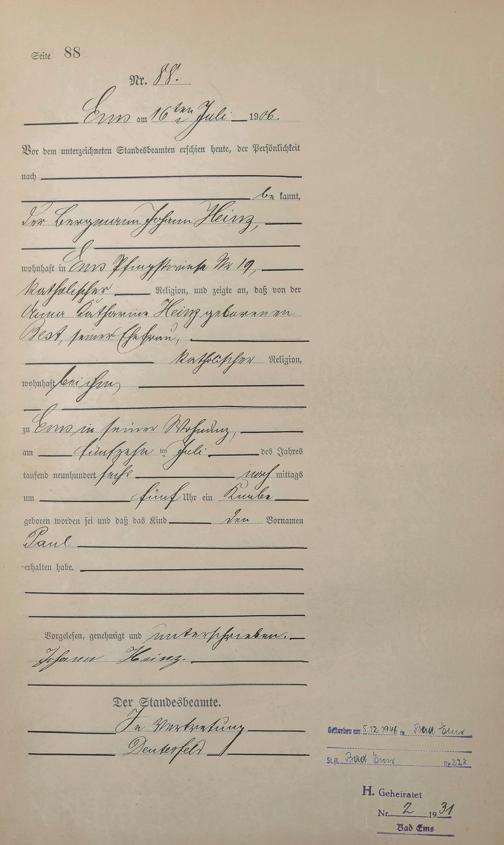 Seite 88
Nr. 88.
Ems am 16ten Juli 1906.
Vor dem unterzeichneten Standesbeamten erschien heute, der Persönlichkeit
nach
be kannt,
der Bergmann Johann Heinz,
wohnhaft in Ems Pfingstwiese Nr 19,
katholischer Religion, und zeigte an, daß von der
Anna Katharine Heinz geborenen
Best, seiner Ehefrau,
katholischer Religion,
wohnhaft bei ihm,
zu Ems in seiner Wohnung,
am fünfzehn ten Juli des Jahres
tausend neunhundert sechs nach mittags
um fünf Uhr ein Knabe
geboren worden sei und daß das Kind den Vornamen
Paul
erhalten habe.
Vorgelesen, genehmigt und unterschrieben.
Johann Heinz.
Der Standesbeamte.
In Vertretung
Gestorben am 5.12.1946 in Bad Ems
St.A. Bad Ems Nr. 222
H. Geheiratet
Nr. 2 1931
Bad Ems